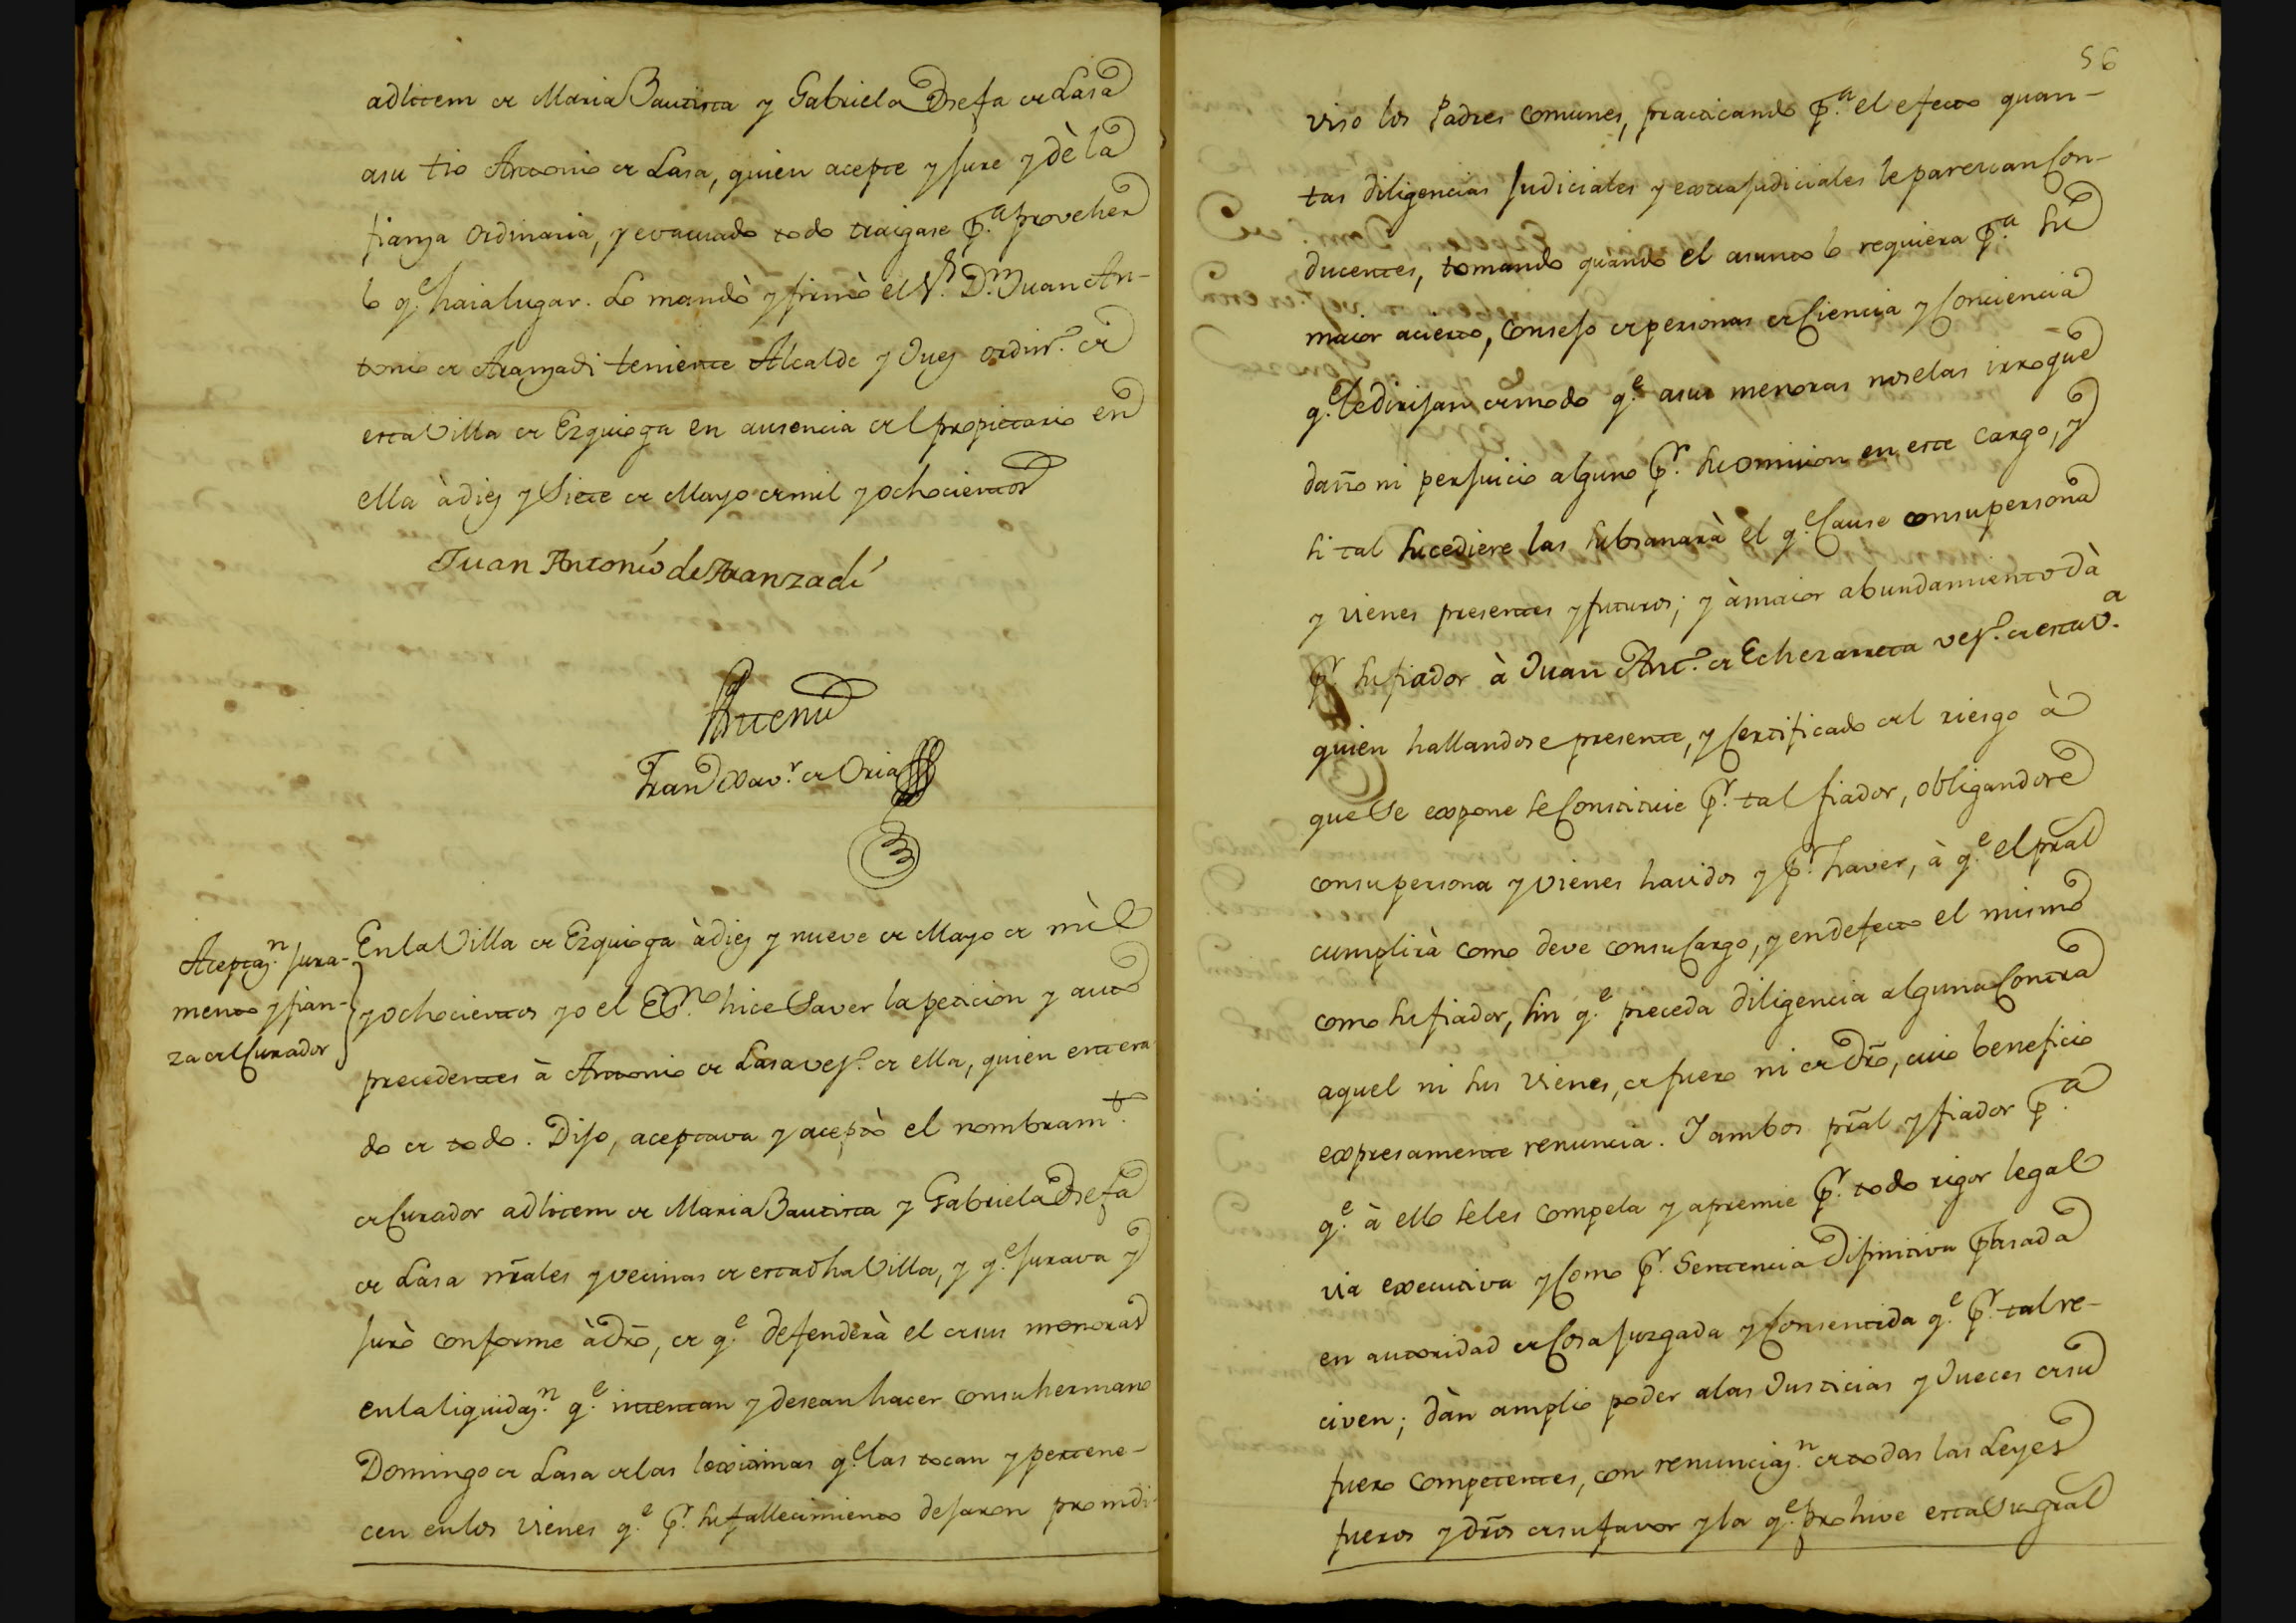 adlitem de Maria Bautista y Gabriela Josefa de Lasa
asu tio Antonio de Lasa, quien acepte y jure y dè la
fianza ordinaria, y evacuado todo traigase p.ª proveher
lo q.e haia lugar. Lo mandò y firmò el S.r D.n Juan An-
tonio de Aranzadi teniente Alcalde y Juez ordin.º de
esta Villa de Ezquioga en ausencia del propietario en
ella à diez y Siete de Mayo de mil y ochocientos
Juan Antonio de Aranzadi
Antemi
Fran.co Xav.r de Oria
Aceptaz.n jura-
mento y fian-
za del Curador
En la Villa de Ezquioga à diez y nueve de Mayo de mil
y ochocientos yo el Es.no hice Saver la peticion y auto
precedentes à Antonio de Lasa vez.º de ella, quien entera
do de todo. Dijo, aceptava y aceptò el nombram.to
de Curador adlitem de Maria Bautista y Gabriela Josefa
de Lasa nrales y vecinas de esta dha Villa, y q.e jurava y
jurò conforme à dro, de q.e defenderà el de sus menoras
en la liquidaz.n q.e intentan y desean hacer con su hermano
Domingo de Lasa de las lexitimas q.e las tocan y pertene-
cen en los vienes q.e p.r su fallecimiento dejaron proindi-
56
viso los Padres comunes, practicando p.ª el efecto quan-
tas diligencias judiciales y extrajudiciales le parezcan Con-
ducentes, tomando quando el asunto lo requiera p.ª su
maior acierto, consejo de personas de Ciencia y Conciencia
q.e le dirijan de modo q.e a sus menoras no se las irrogue
daño ni perjuicio alguno p.r su omision en este cargo, y
si tal sucediere las subsanarà el q.e Cause con su persona
y vienes presentes y futuros; y à maior abundamiento dà
p.r su fiador à Juan Ant.º de Echezarreta vez.º de esta V.ª
quien hallandose presente, y Certificado del riesgo à
que Se expone se Constituie p.r tal fiador, obligandose
con su persona y vienes havidos y p.r haver, à q.e el pral
cumplirà como deve con su Cargo, y en defecto el mismo
como su fiador, sin q.e preceda diligencia alguna Contra
aquel ni sus vienes, de fuero ni de dro, cuio beneficio
expresamente renuncia. Y ambos pral y fiador p.ª
q.e à ello se les compela y apremie p.r todo rigor legal
via executiva y Como p.r Sentencia difinitiva pasada
en autoridad de Cosa juzgada y Consentida q.e p.r tal re-
civen; dàn amplio poder a las Justicias y Jueces de su
fuero competentes, con renunciaz.n de todas las Leyes
fueros y dros de su favor y la q.e prohive esta Su gral